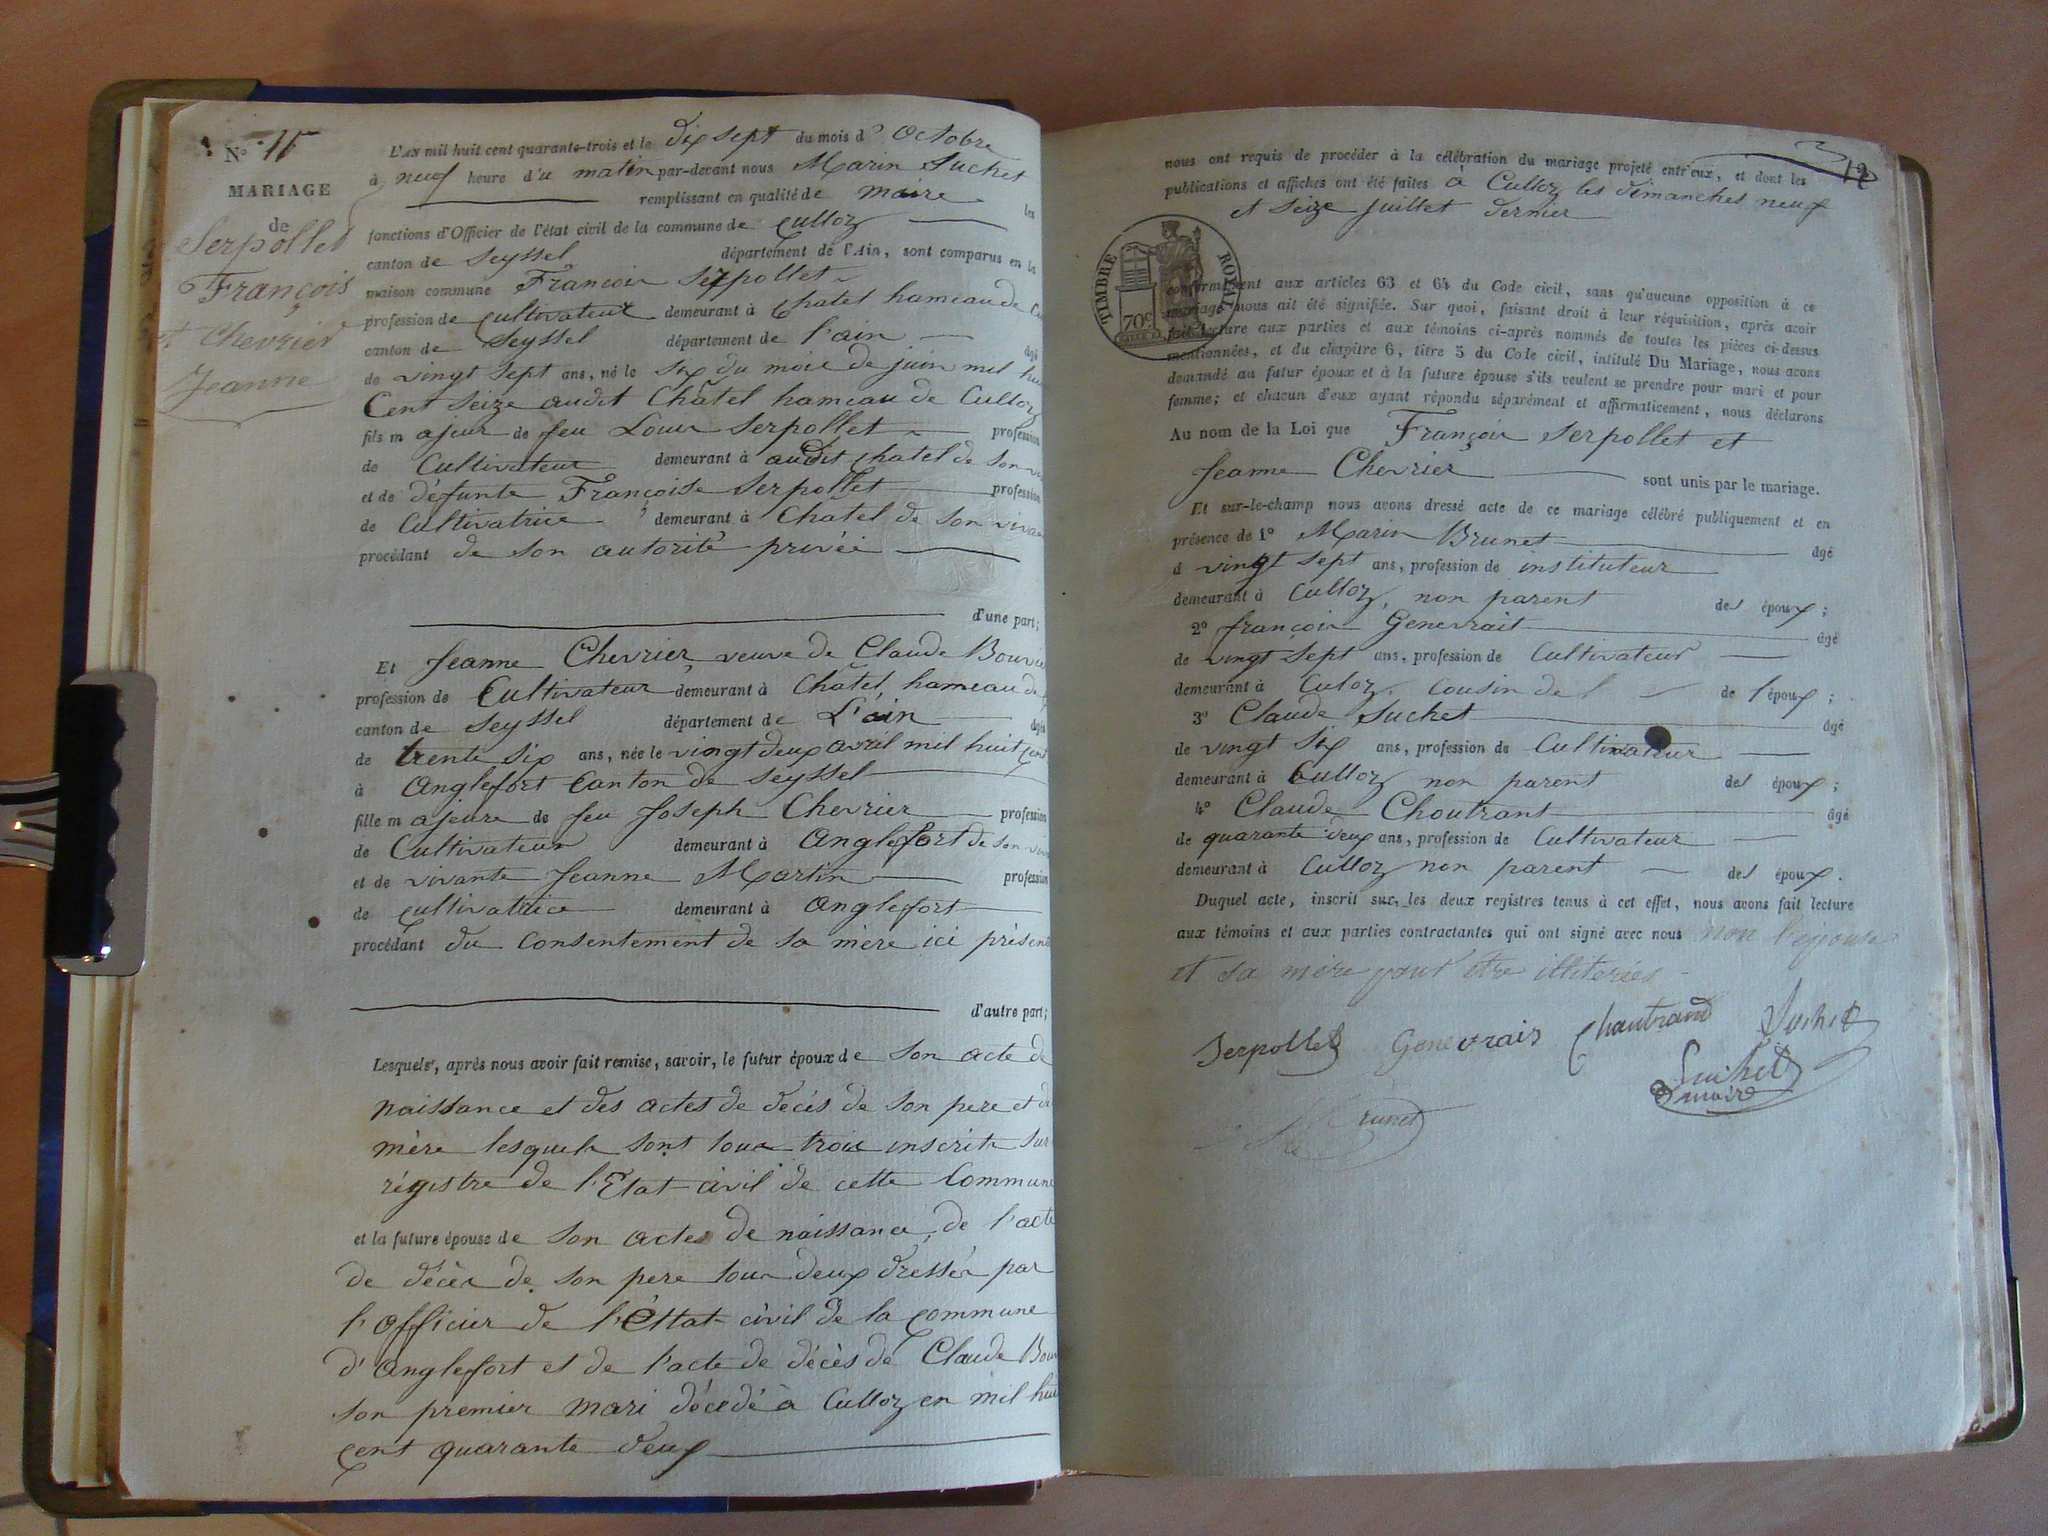 N° 15
MARIAGE
de
Serpollet
François
et Chevrier
Jeanne
L'AN mil huit cent quarante-trois et le dix sept du mois d'Octobre
à neuf heure d'u matin par-devant nous Marin Suchet
remplissant en qualité de maire les
fonctions d'Officier de l'état civil de la commune de Culloz
canton de Seyssel département de l'Ain, sont comparus en la
maison commune François Serpollet
profession de cultivateur demeurant à Chatel hameau de
canton de Seyssel département de l'ain âgé
de vingt sept ans, né le six du mois de juin mil hui
Cent seize audit Châtel hameau de Culloz
fils majeur de feu Louis Serpollet profession
de Cultivateur demeurant à audit chatel de son
et de défunte Françoise Serpollet profession
de Cultivatrice demeurant à Chatel de son viva
procédant de son autorité privée
d'une part;
Et Jeanne Chevrier, veuve de Claude Bouvie
profession de Cultivateur demeurant à Châtel, hameau de
canton de Seyssel département de L'ain âgée
de trente six ans, née le vingt deux avril mil huit cent
à Anglefort Canton de Seyssel
fille majeure de feu Joseph Chevrier profession
de Cultivateur demeurant à Anglefort de son viv
et de vivante Jeanne Martin profession
de cultivatrice demeurant à Anglefort
procédant du consentement de sa mère ici présent
d'autre part;
Lesquels, après nous avoir fait remise, savoir, le futur époux de son acte de
naissance et des actes de décès de son pere et de
mère lesquels sont tous trois inscrits sur
régistre de l'Etat civil de cette Commune
et la future épouse de son actes de naissance, de l'acte
de décès de son pere tous deux dressés par
l'officier de l'éttat civil de la commune
d'Anglefort et de l'acte de décès de Claude Bouv
son premier mari décédé à Culloz en mil hui
cent quarante deux
12
nous ont requis de procéder à la célébration du mariage projeté entr'eux, et dont les
publications et affiches ont été faites à Culloz les dimanches neuf
et seize juillet dernier
TIMBRE ROYAL
70c
conformément aux articles 63 et 64 du Code civil, sans qu'aucune opposition à ce
mariage nous ait été signifiée. Sur quoi, faisant droit à leur réquisition, après avoir
fait lecture aux parties et aux témoins ci-après nommés de toutes les pièces ci-dessus
mentionnées, et du chapitre 6, titre 5 du Code civil, intitulé Du Mariage, nous avons
demandé au futur époux et à la future épouse s'ils veulent se prendre pour mari et pour
femme; et chacun d'eux ayant répondu séparément et affirmativement, nous déclarons
Au nom de la Loi que François Serpollet et
Jeanne Chevrier sont unis par le mariage.
Et sur-le-champ nous avons dressé acte de ce mariage célébré publiquement et en
présence de 1° Marin Brunet âgé
d vingt sept ans, profession de instituteur
demeurant à Culloz, non parent des époux;
2° françois Genevrait âgé
de vingt sept ans, profession de Cultivateur
demeurant à Culoz, cousin de l de l'époux;
3° Claude Suchet âgé
de vingt six ans, profession de Cultivateur
demeurant à Culloz non parent des époux;
4° Claude Choutrant âgé
de quarante deux ans, profession de Cultivateur
demeurant à Culloz non parent des époux.
Duquel acte, inscrit sur les deux registres tenus à cet effet, nous avons fait lecture
aux témoins et aux parties contractantes qui ont signé avec nous non l'épouse
et sa mère pour être illiterées
Serpollet Genevrais Chautrand Suchet
Suchet
maire
Brunet